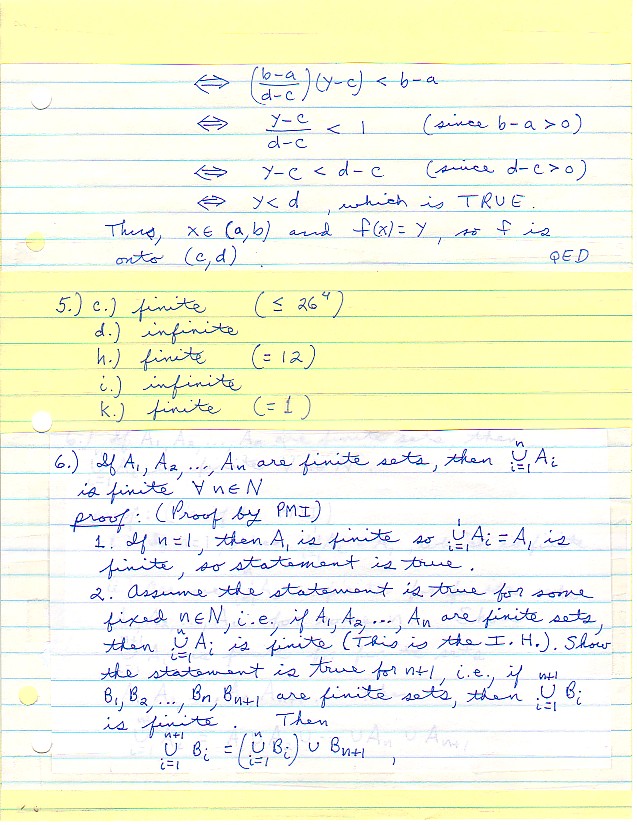 ⇔ ((b-a)/(d-c))(y-c) < b-a
⇔ (y-c)/(d-c) < 1 (since b-a > 0)
⇔ y-c < d-c (since d-c > 0)
⇔ y < d , which is TRUE.
Thus, x ∈ (a,b) and f(x) = y, so f is
onto (c,d). QED
5.) c.) finite (≤ 26⁴)
d.) infinite
h.) finite (= 12)
i.) infinite
k.) finite (= 1)
6.) If A₁, A₂, ..., Aₙ are finite sets, then ⋃ᵢ₌₁ⁿ Aᵢ
is finite ∀ n ∈ N
proof: (Proof by PMI)
1. If n = 1, then A₁ is finite so ⋃ᵢ₌₁¹ Aᵢ = A₁ is
finite, so statement is true.
2. Assume the statement is true for some
fixed n ∈ N, i.e., if A₁, A₂, ..., Aₙ are finite sets,
then ⋃ᵢ₌₁ⁿ Aᵢ is finite (This is the I.H.). Show
the statement is true for n+1, i.e., if
B₁, B₂, ..., Bₙ, Bₙ₊₁ are finite sets, then ⋃ᵢ₌₁ⁿ⁺¹ Bᵢ
is finite. Then
⋃ᵢ₌₁ⁿ⁺¹ Bᵢ = (⋃ᵢ₌₁ⁿ Bᵢ) ∪ Bₙ₊₁ ,